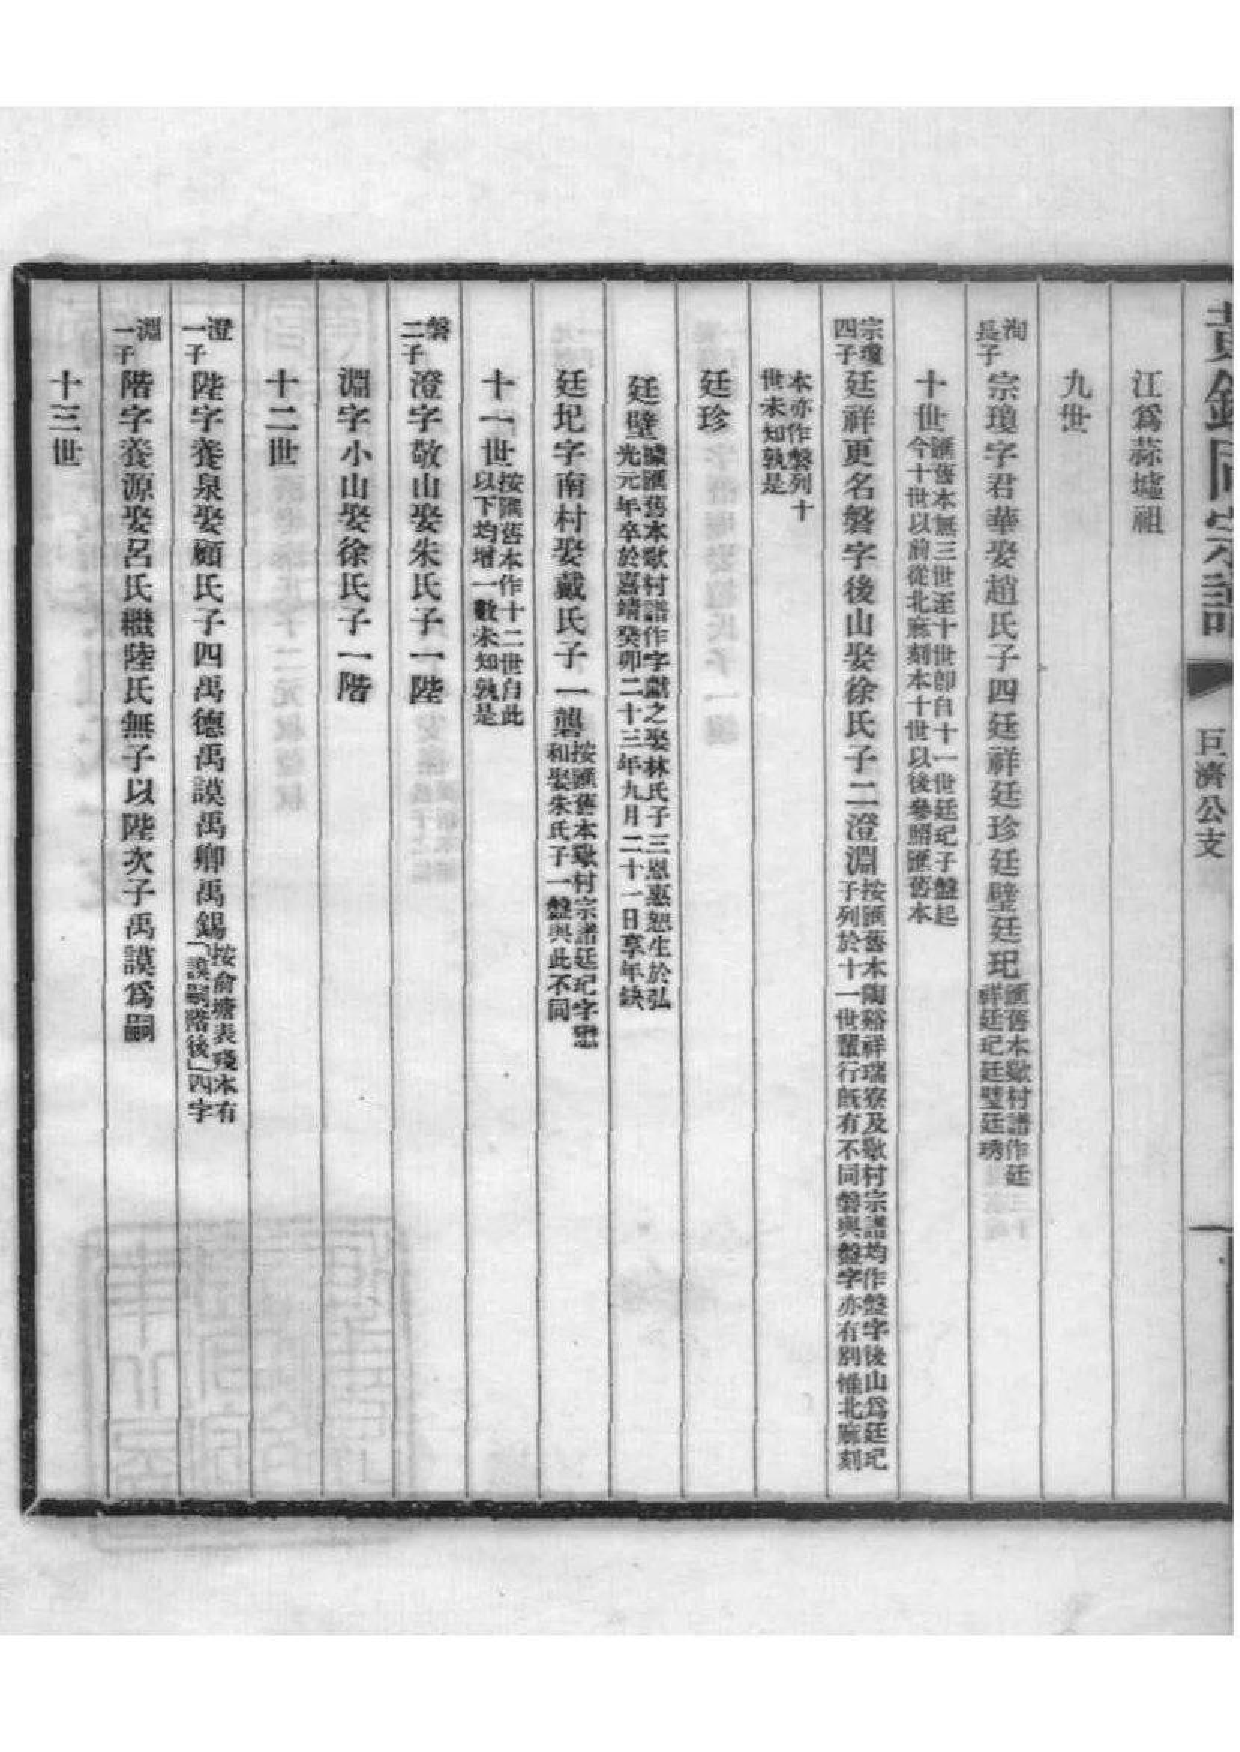 黃錢同宗譜
巨濟公支
江爲蒜墟祖
九世
洵長子
宗瓊字君華娶趙氏子四廷祥廷珍廷璧廷玘
匯舊本歇村譜作廷
祥廷玘廷璧廷琇
十世
匯舊本無三世至十世卽自十一世廷玘子盤起
今十世以前從北麻刻本十世以後參照匯舊本
宗瓊四子
廷祥更名磐字後山娶徐氏子二澄淵
按匯舊本陶谿祥瑞寮及歇村宗譜均作盤字後山爲廷玘
子列於十一世輩行旣有不同磐與盤字亦有別惟北麻刻
本亦作磐列十
世未知孰是
廷珍
廷璧
匯舊本歇村譜作字獻之娶林氏子三恩惠恕生於弘
光元年卒於嘉靖癸卯二十三年九月二十一日享年缺
廷玘字南村娶戴氏子一龔
按匯舊本歇村宗譜廷玘字
和娶朱氏子一盤與此不同
十一世
按匯舊本作十二世自此
以下均增一數未知孰是
磐二子
澄字敬山娶朱氏子一陞
淵字小山娶徐氏子一階
十二世
澄一子
陞字養泉娶顧氏子四禹德禹謨禹卿禹錫
按俞塘表殘本有
「謨嗣階後」四字
淵一子
階字養源娶呂氏繼陸氏無子以陞次子禹謨爲嗣
十三世